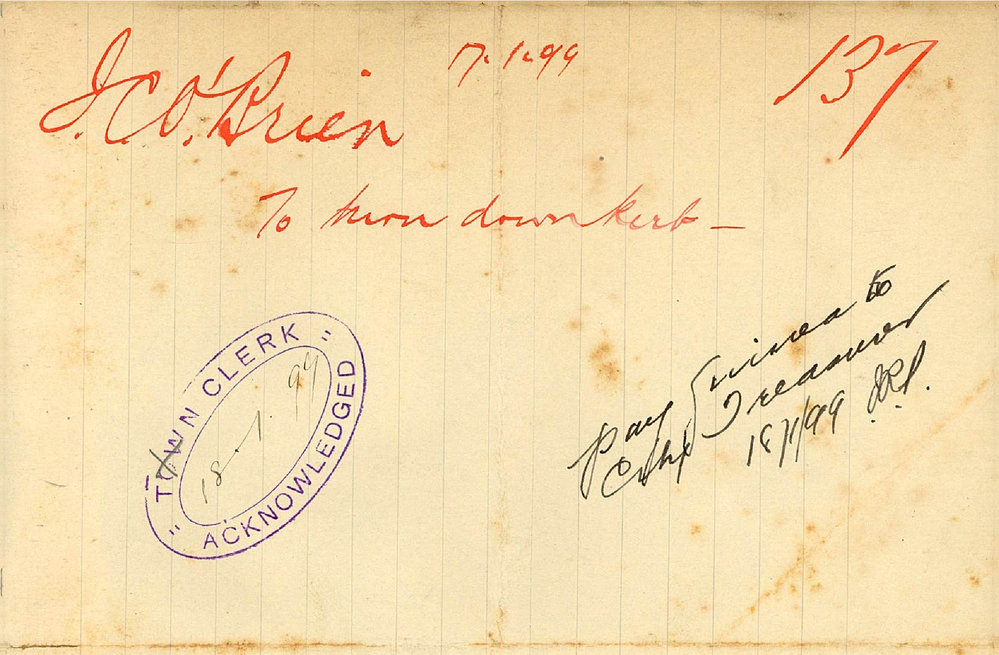 J. C. O'Brien
17.1.99
137
To turn down kerb —
"TOWN CLERK"
18-1.99
ACKNOWLEDGED
pay Guinea to
City Treasurer
18/1/99